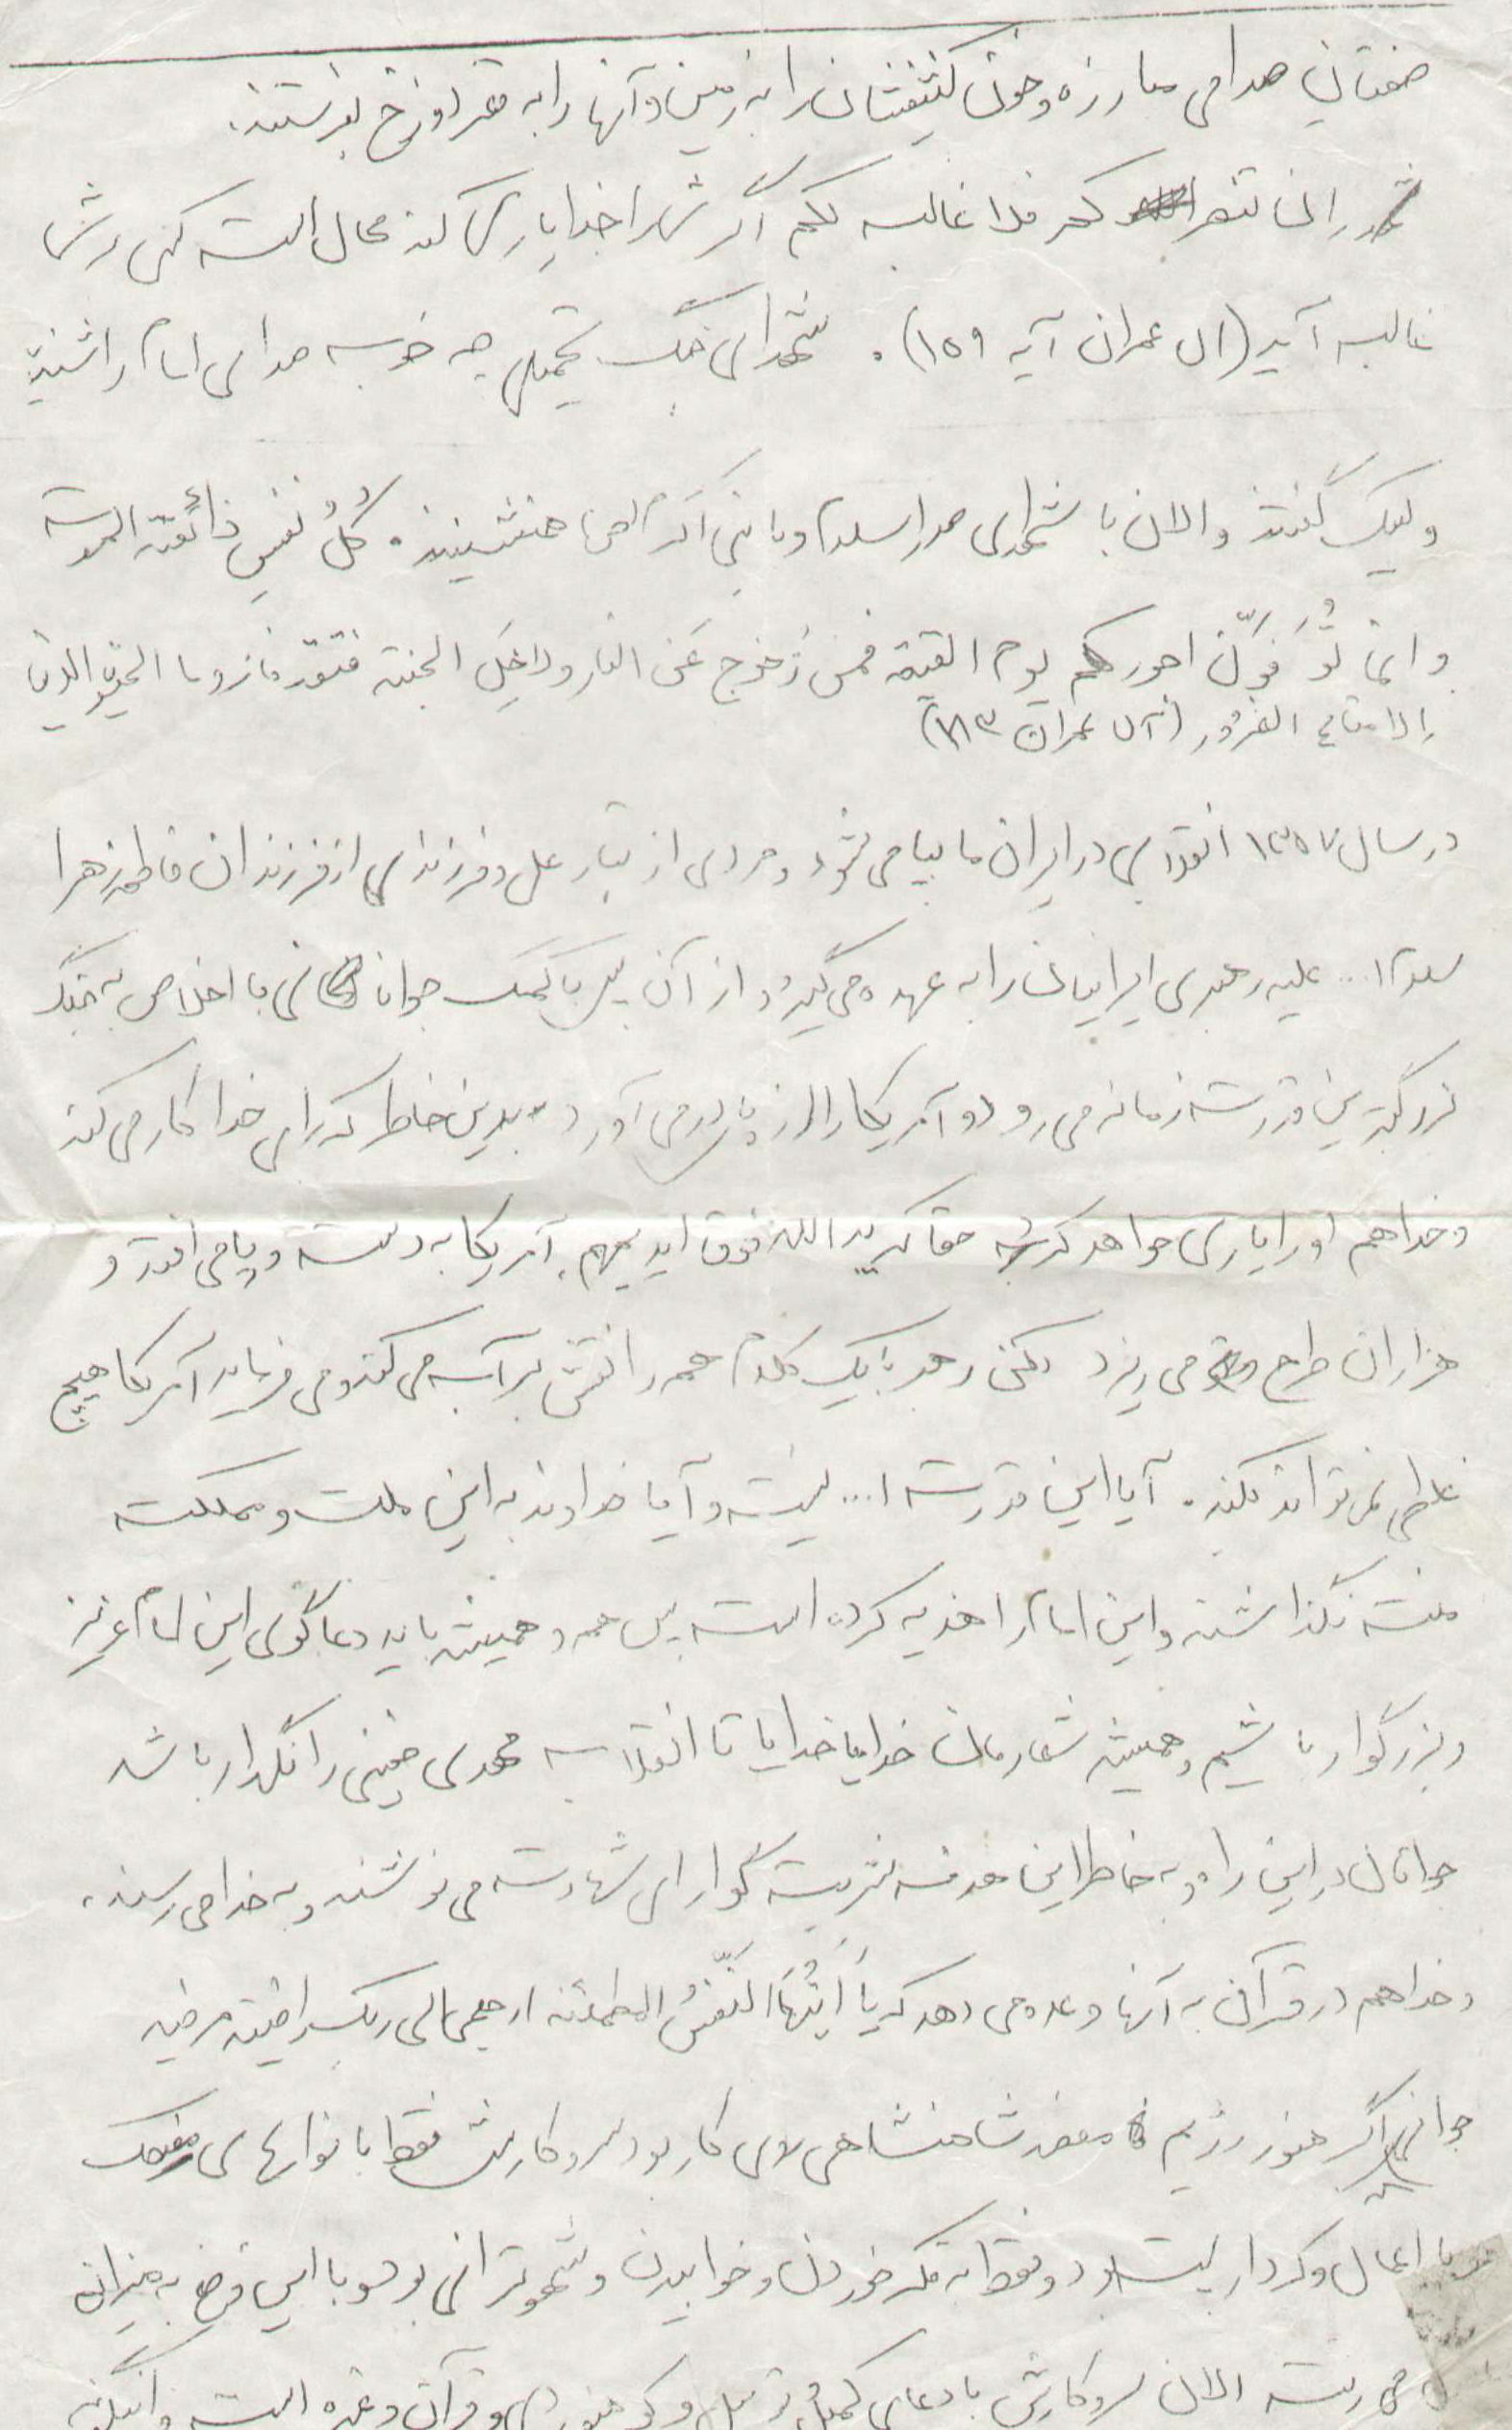 صفتان صدامی مبارزه و خون کثیفشان را به زمین و آنها را به قعر دوزخ بفرستند.
ان ینصرکم فلا غالب لکم اگر شما را خدا یاری کند محال است کسی بر شما
غالب آید (ال عمران آیه ۱۵۹). شهدای جنگ تحمیلی چه خوب صدای امام را شنیدند
و لبیک گفتند و الان با شهدای صدر اسلام و با نبی اکرم (ص) همنشینند. کُلُّ نفسٍ ذائقة الموت
و انما تُوَفَّوْنَ اجورکم یوم القیمة فمن زُحزح عَنِ النار و ادخِلَ الجنة فقد فاز و ما الحیوة الدنیا
الا متاع الغرور (آل عمران ۱۸۳)
در سال ۱۳۵۷ انقلابی در ایران ما بپا می شود و مردی از تبار علی و فرزندی از فرزندان فاطمه زهرا
سلام ا... علیه رهبری ایرانیان را به عهده می گیرد و از آن پس با کمک جوانانی با اخلاص به جنگ
بزرگترین قدرت زمانه می رود و آمریکا را از پای در می آورد بدین خاطر که برای خدا کار می کند
و خدا هم او را یاری خواهد کرد حقا که یدالله فوق ایدیهم. آمریکا به دست و پا می افتد و
هزاران طرح می ریزد لکن رهبر با یک کلام همه را نقش بر آب می کند و می فرماید آمریکا هیچ
غلطی نمی تواند بکند. آیا این قدرت ا... نیست و آیا خداوند به این ملت و مملکت
منت نگذاشته و این امام را هدیه کرده است پس همه و همیشه باید دعاگوی این امام عزیز
و بزرگوار باشیم و همیشه شعارمان خدایا خدایا تا انقلاب مهدی خمینی را نگهدار باشد
جوانان در این راه و به خاطر این هدف شربت گوارای شهادت می نوشند و به خدا می رسند.
و خدا هم در قرآن به آنها وعده می دهد که یا أَیَّتُهَا النَّفسُ المطمئنه ارجعی الی ربک راضیة مرضیه
جوانی اگر هنوز رژیم منفور شاهنشاهی روی کار بود سروکارش فقط با نوارهای
و با اعمال و کردار پست بود و فقط به فکر خوردن و خوابیدن و شهوترانی بود و با این وضع به میزان
می رفت الان سروکارش با دعای کمیل و توسل و و قرآن و غیره است و اینگونه